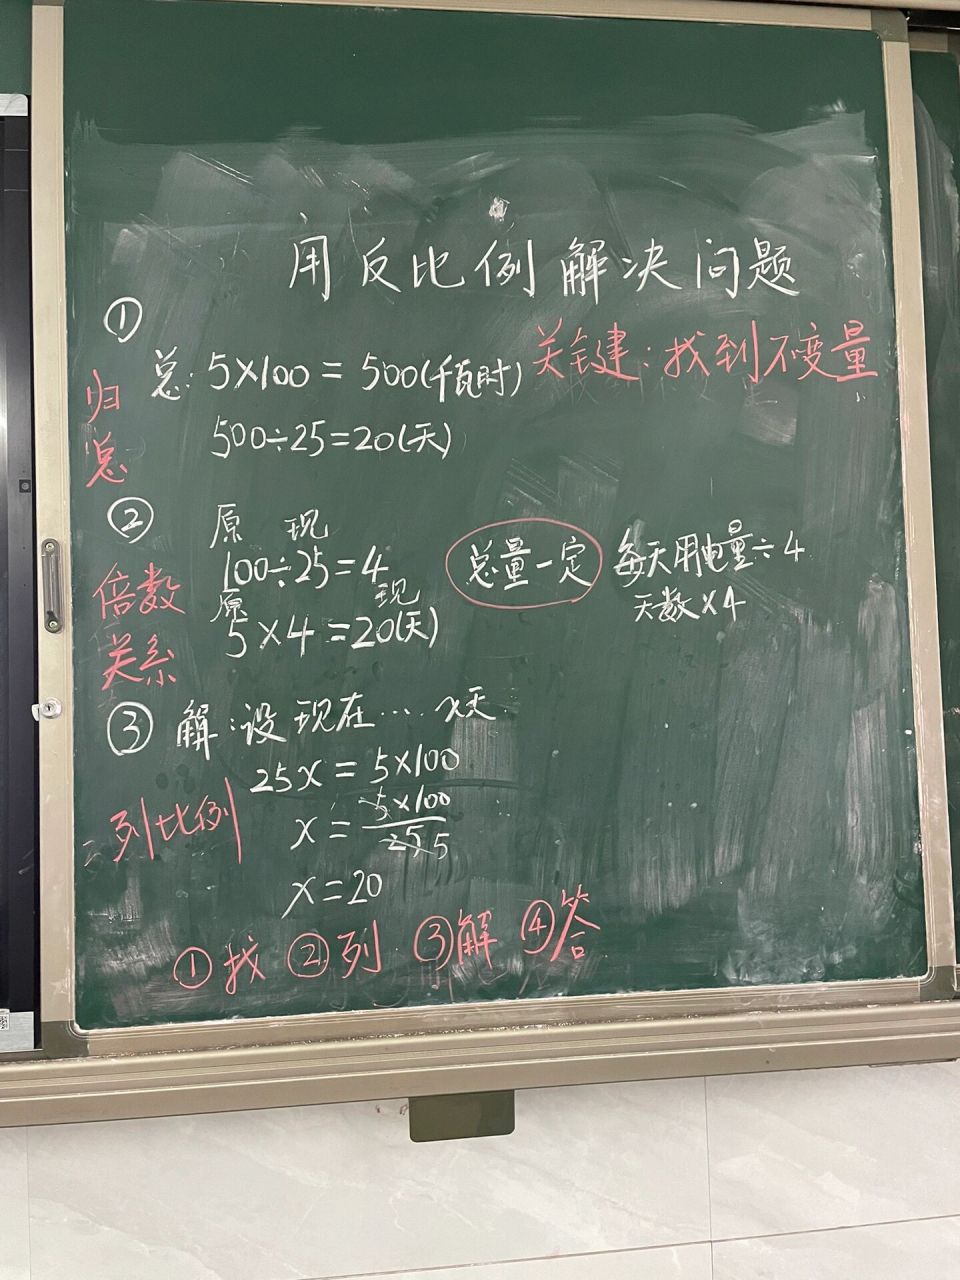 用反比例解决问题
关键：找到不变量
①
归总
总：5×100=500(千瓦时)
500÷25=20(天)
②
倍数关系
原 现
100÷25=4
原 现
5×4=20(天)
总量一定 每天用电量÷4
天数×4
③ 解：设现在… x天
列比例
25x=5×100
x=5×100/25 5
x=20
①找 ②列 ③解 ④答